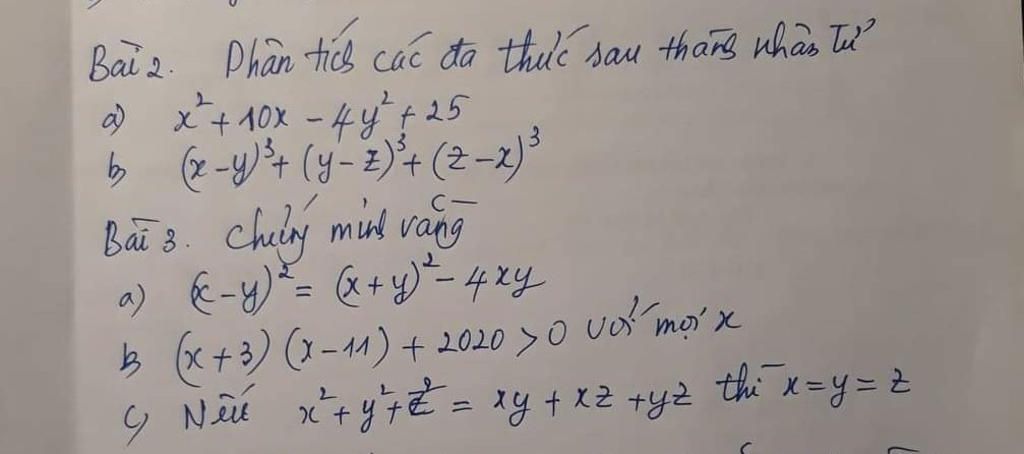 Bài 2. Phân tích các đa thức sau thành nhân tử
a) x² + 10x - 4y² + 25
b) (x-y)³ + (y-z)³ + (z-x)³
Bài 3. Chứng minh rằng
a) (x-y)² = (x+y)² - 4xy
b) (x+3)(x-11) + 2020 > 0 với mọi x
c) Nếu x² + y² + z² = xy + xz + yz thì x = y = z